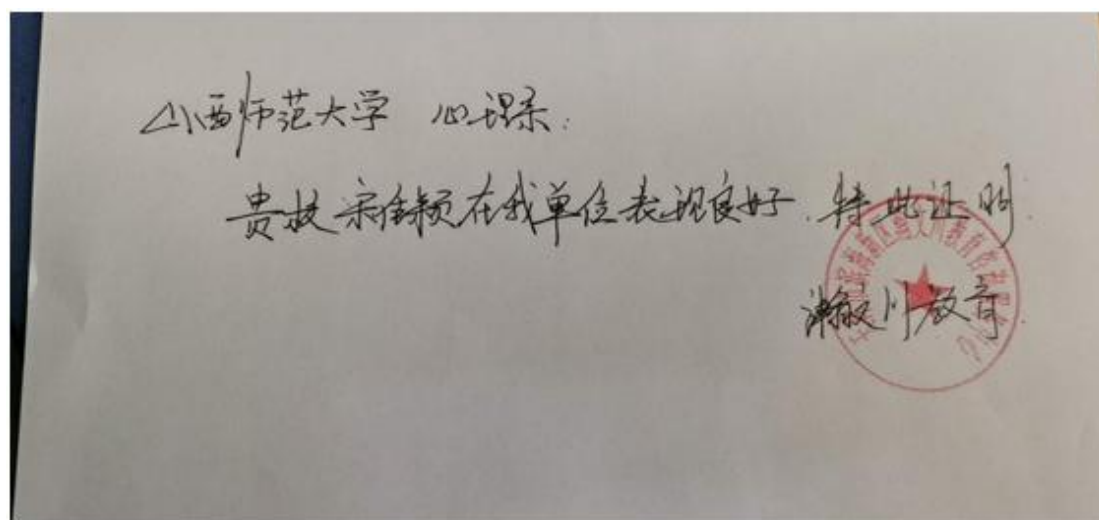 山西师范大学 心理系:
贵校宋佳颖在我单位表现良好.特此证明.
瀚敏川教育